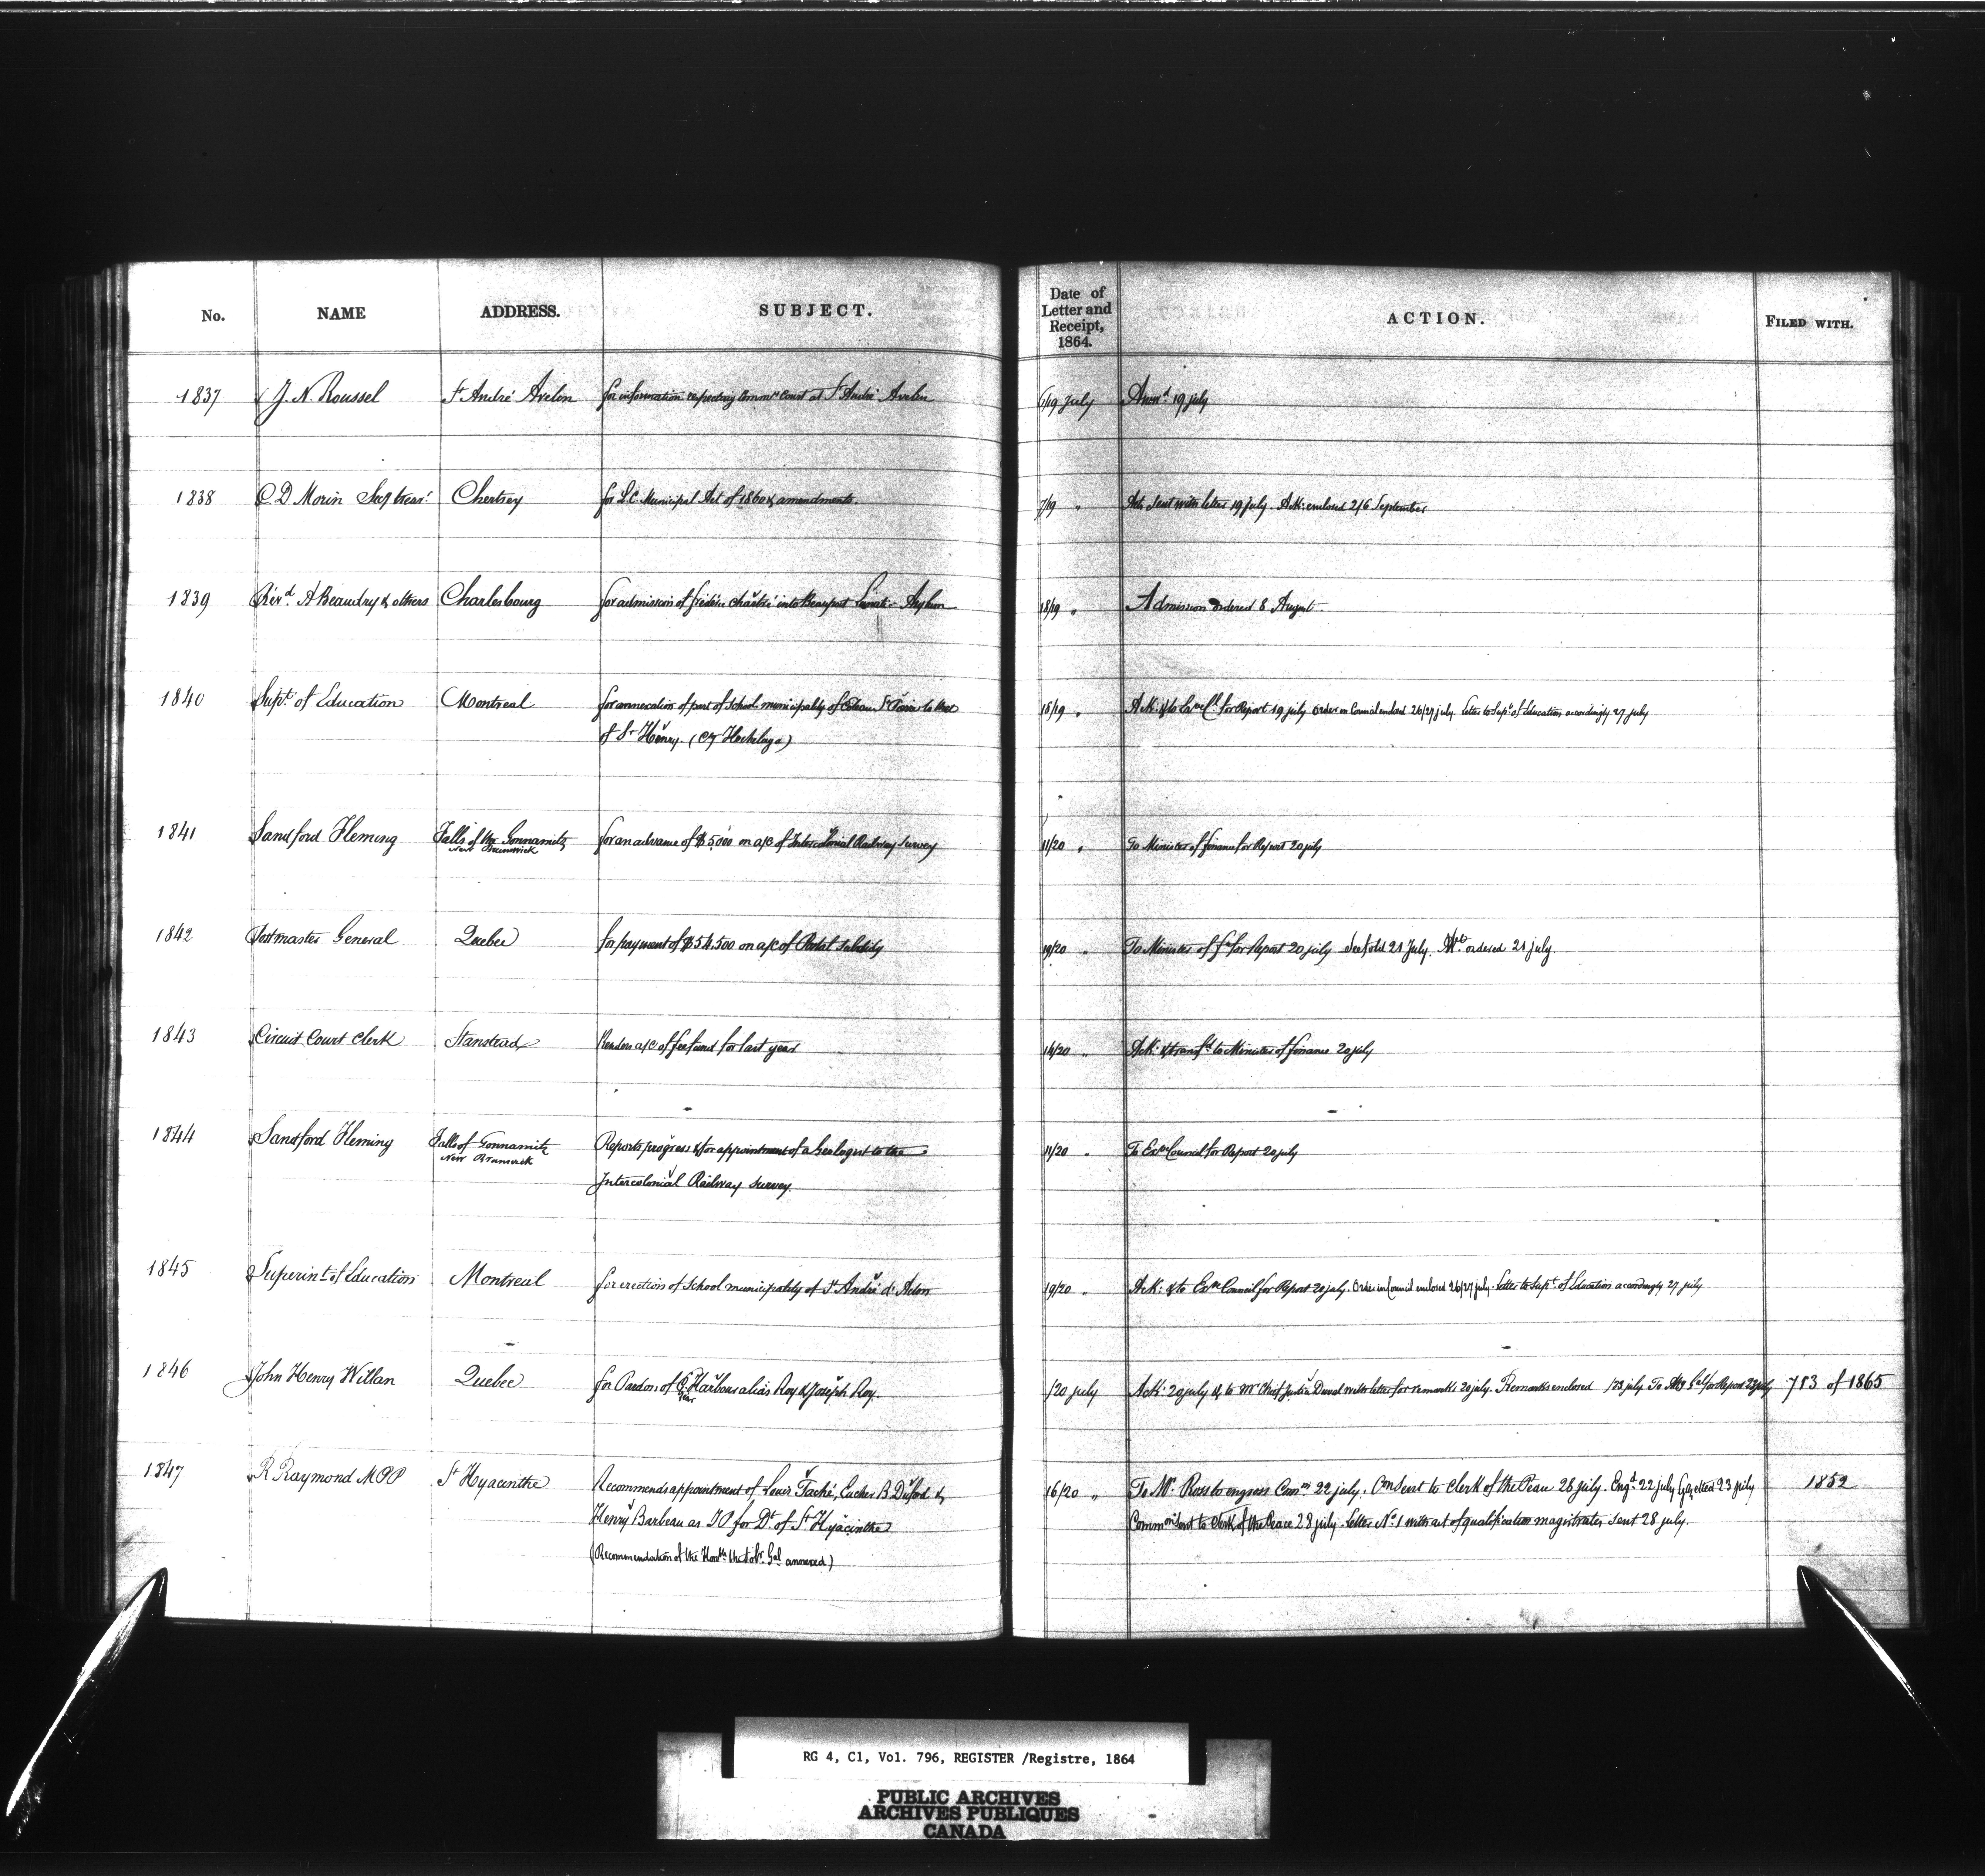 No. NAME ADDRESS. SUBJECT. Date of Letter and Receipt, 1864. ACTION. FILED WITH.
1837 J. N. Roussel St André Avelin for information respecting Commrs Court at St André Avelin 6/19 july Answd 19 july
1838 C D Morin Sec treasr Chertsey for L.C. Municipal Act of 1860 & amendments. 7/19 " Acts sent with letter 19 july. Ack: enclosed 2/6 September
1839 Revd A Beaudry & others Charlesbourg for admission of into Beauport Lunatic Asylum 18/19 " Admission ordered 8 August
1840 Supt of Education Montreal for annexation of part of School municipality of Coteau St Pierre to that 18/19 " Ack: & to Exve Cl for Report 19 july Order in Council enclosed 26/27 july. Letter to Supt of Education accordingly 27 july
of St Henry. (Cy Hochelaga)
1841 Sandford Fleming Falls of the Gonnamitz for an advance of $5,000 on a/c of Intercolonial Railway Survey 11/20 " To Minister of finance for Report 20 july
New Brunswick
1842 Postmaster General Quebec for payment of $54.500 on a/c of Postal Subsidy 19/20 " To Minister of fce for Report 20 july 21 July. ordered 21 july.
1843 Circuit Court Clerk Stanstead Renders a/c of fee fund for last year 14/20 " Ack: & transfd to Minister of finance 20 july
1844 Sandford Fleming Falls of Gonnamitz Reports progress & for appointment of a Geologist to the 11/20 " To Exve Council for Report 20 july
New Brunswick
Intercolonial Railway Survey.
1845 Superint of Education Montreal for erection of School municipality of St André d'Acton 19/20 " Ack: & to Exve Council for Report 20 july. Order in Council enclosed 26/27 july. Letter to Supt of Education accordingly 27 july
1846 John Henry Willan Quebec for Pardon of Harbour alias Roy & Joseph Roy. /20 july Ack: 20 july & to Mr Chief Justice Duval with letter for remarks 20 july. Remarks enclosed /23 july. To Atty Gal for Report 23 july 713 of 1865
1847 R Raymond MPP St Hyacinthe Recommends appointment of Louis Taché, Eucher B Dufort & 16/20 " To Mr. Ross to engross Comn 22 july. Comn sent to Clerk of the Peace 28 july. Engd 22 july Gazetted 23 july 1852
Henry Barbeau as JP for Dt of St Hyacinthe Commn sent to Clerk of the Peace 28 july. Letter No 1 with act of qualification magistrates sent 28 july.
(Recommendation of the Honble the Solr Gal annexed)
RG 4, C1, Vol. 796, REGISTER /Registre, 1864
PUBLIC ARCHIVES
ARCHIVES PUBLIQUES
CANADA